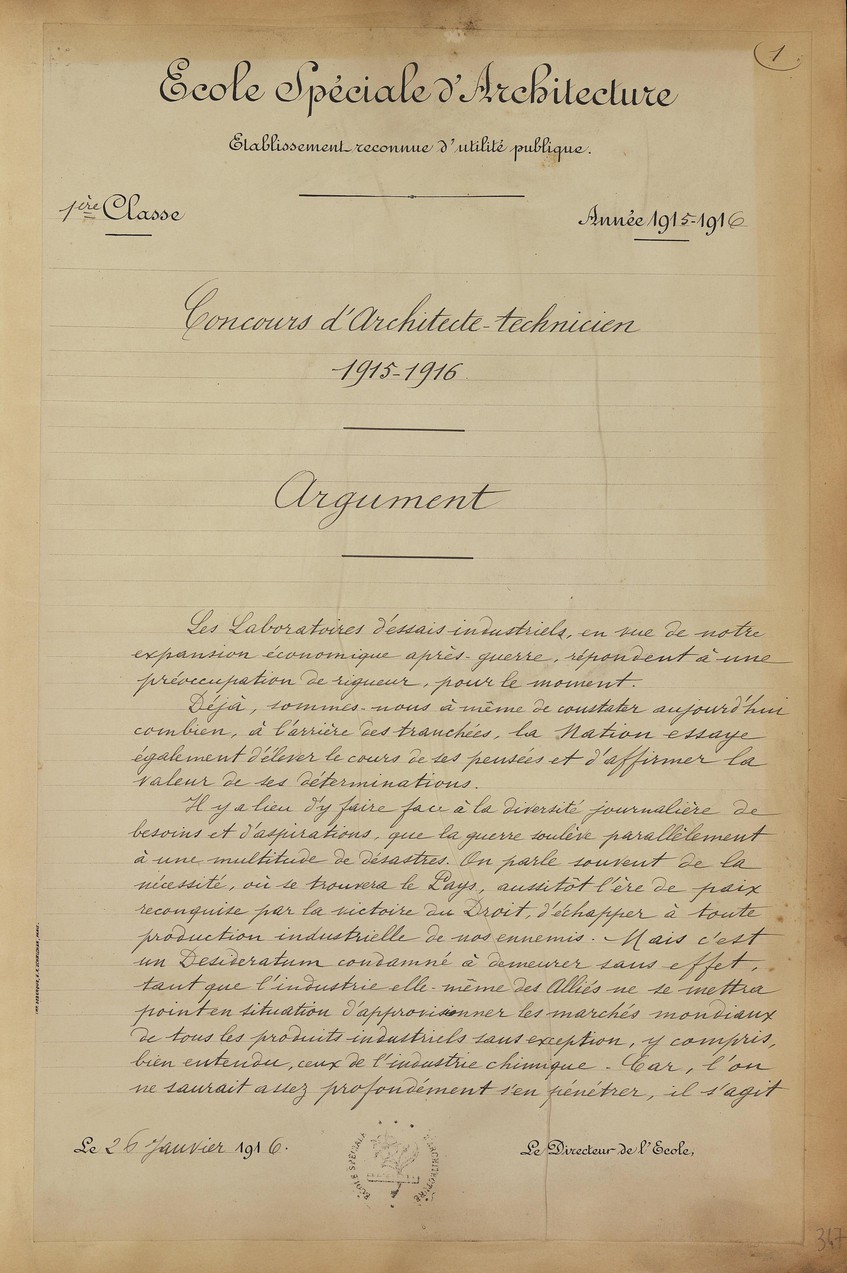 1
Ecole Spéciale d'Architecture
Etablissement reconnue d'utilité publique.
1ère Classe
Année 1915-1916
Concours d'Architecte-technicien
1915-1916
Argument
Les Laboratoires d'essais industriels, en vue de notre
expansion économique après-guerre, répondent à une
préoccupation de rigueur, pour le moment.
Déjà, sommes-nous à même de constater aujourd'hui
combien, à l'arrière des tranchées, la Nation essaye
également d'élever le cours de ses pensées et d'affirmer la
valeur de ses déterminations.
Il y a lieu d'y faire face à la diversité journalière de
besoins et d'aspirations, que la guerre soulève parallèlement
à une multitude de désastres. On parle souvent de la
nécessité, où se trouvera le Pays, aussitôt l'ère de paix
reconquise par la victoire du Droit, d'échapper à toute
production industrielle de nos ennemis. Mais c'est
un Desideratum condamné à demeurer sans effet,
tant que l'industrie elle-même des Alliés ne se mettra
point en situation d'approvisionner les marchés mondiaux
de tous les produits industriels sans exception, y compris,
bien entendu, ceux de l'industrie chimique. Car, l'on
ne saurait assez profondément s'en pénétrer, il s'agit
Le 26 Janvier 1916.
Le Directeur de l'Ecole,
ECOLE SPECIALE D'ARCHITECTURE
347